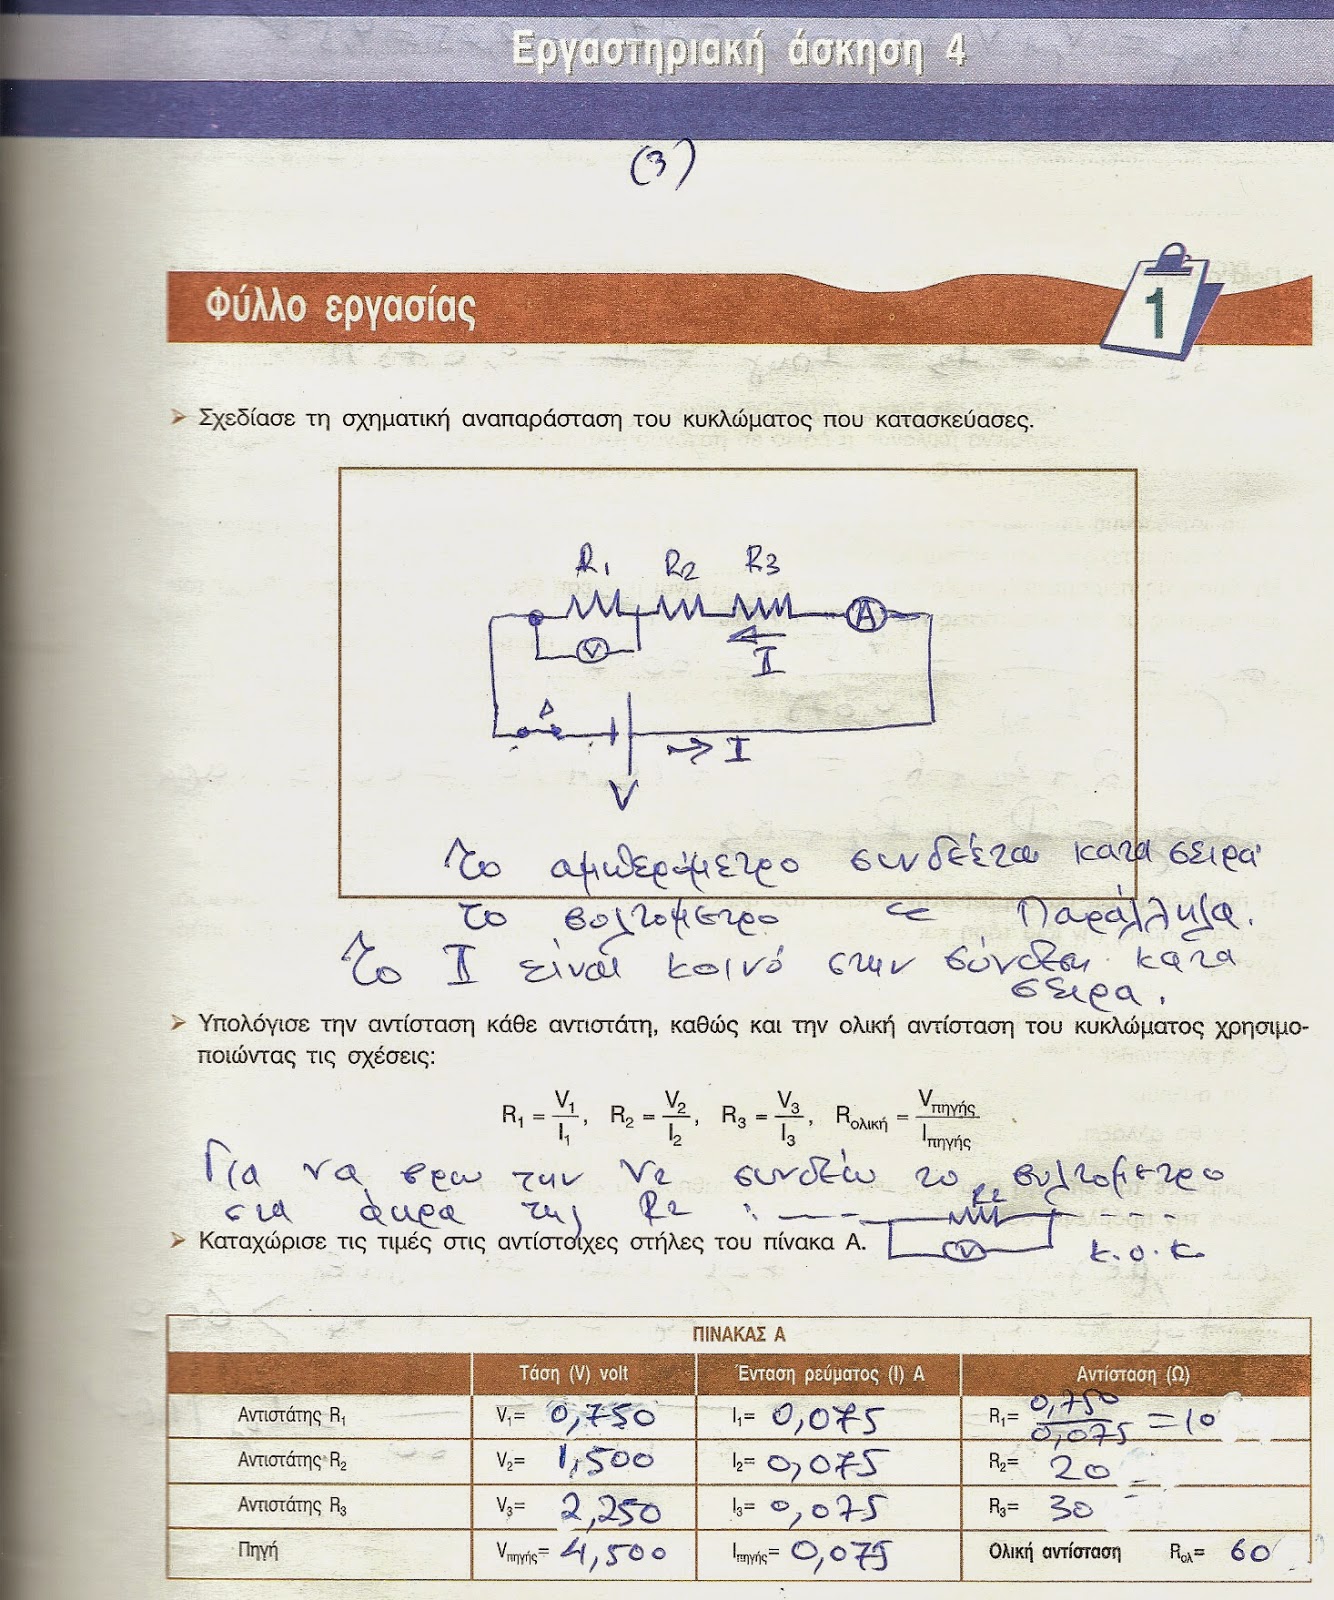 Εργαστηριακή άσκηση 4
(3)
Φύλλο εργασίας
1
Σχεδίασε τη σχηματική αναπαράσταση του κυκλώματος που κατασκεύασες.
R1 R2 R3
A
V
I
Δ
I
V
Το αμπερόμετρο συνδέεται κατα σειρά
το βολτομετρο " Παράλληλα.
Το I είναι κοινό στην σύνδεση κατα
σειρα.
Υπολόγισε την αντίσταση κάθε αντιστάτη, καθώς και την ολική αντίσταση του κυκλώματος χρησιμο-
ποιώντας τις σχέσεις:
R1 = V1/I1, R2 = V2/I2, R3 = V3/I3, Rολική = Vπηγής/Iπηγής
Για να βρω την V2 συνδέω το βολτομετρο
στα άκρα της R2 :
R2
V
κ.ο.κ
Καταχώρισε τις τιμές στις αντίστοιχες στήλες του πίνακα Α.
ΠΙΝΑΚΑΣ Α
Τάση (V) volt Ένταση ρεύματος (I) A Αντίσταση (Ω)
Αντιστάτης R1 V1= 0,750 I1= 0,075 R1= 0,750/0,075 = 10
Αντιστάτης R2 V2= 1,500 I2= 0,075 R2= 20
Αντιστάτης R3 V3= 2,250 I3= 0,075 R3= 30
Πηγή Vπηγής= 4,500 Iπηγής= 0,075 Ολική αντίσταση Rολ= 60